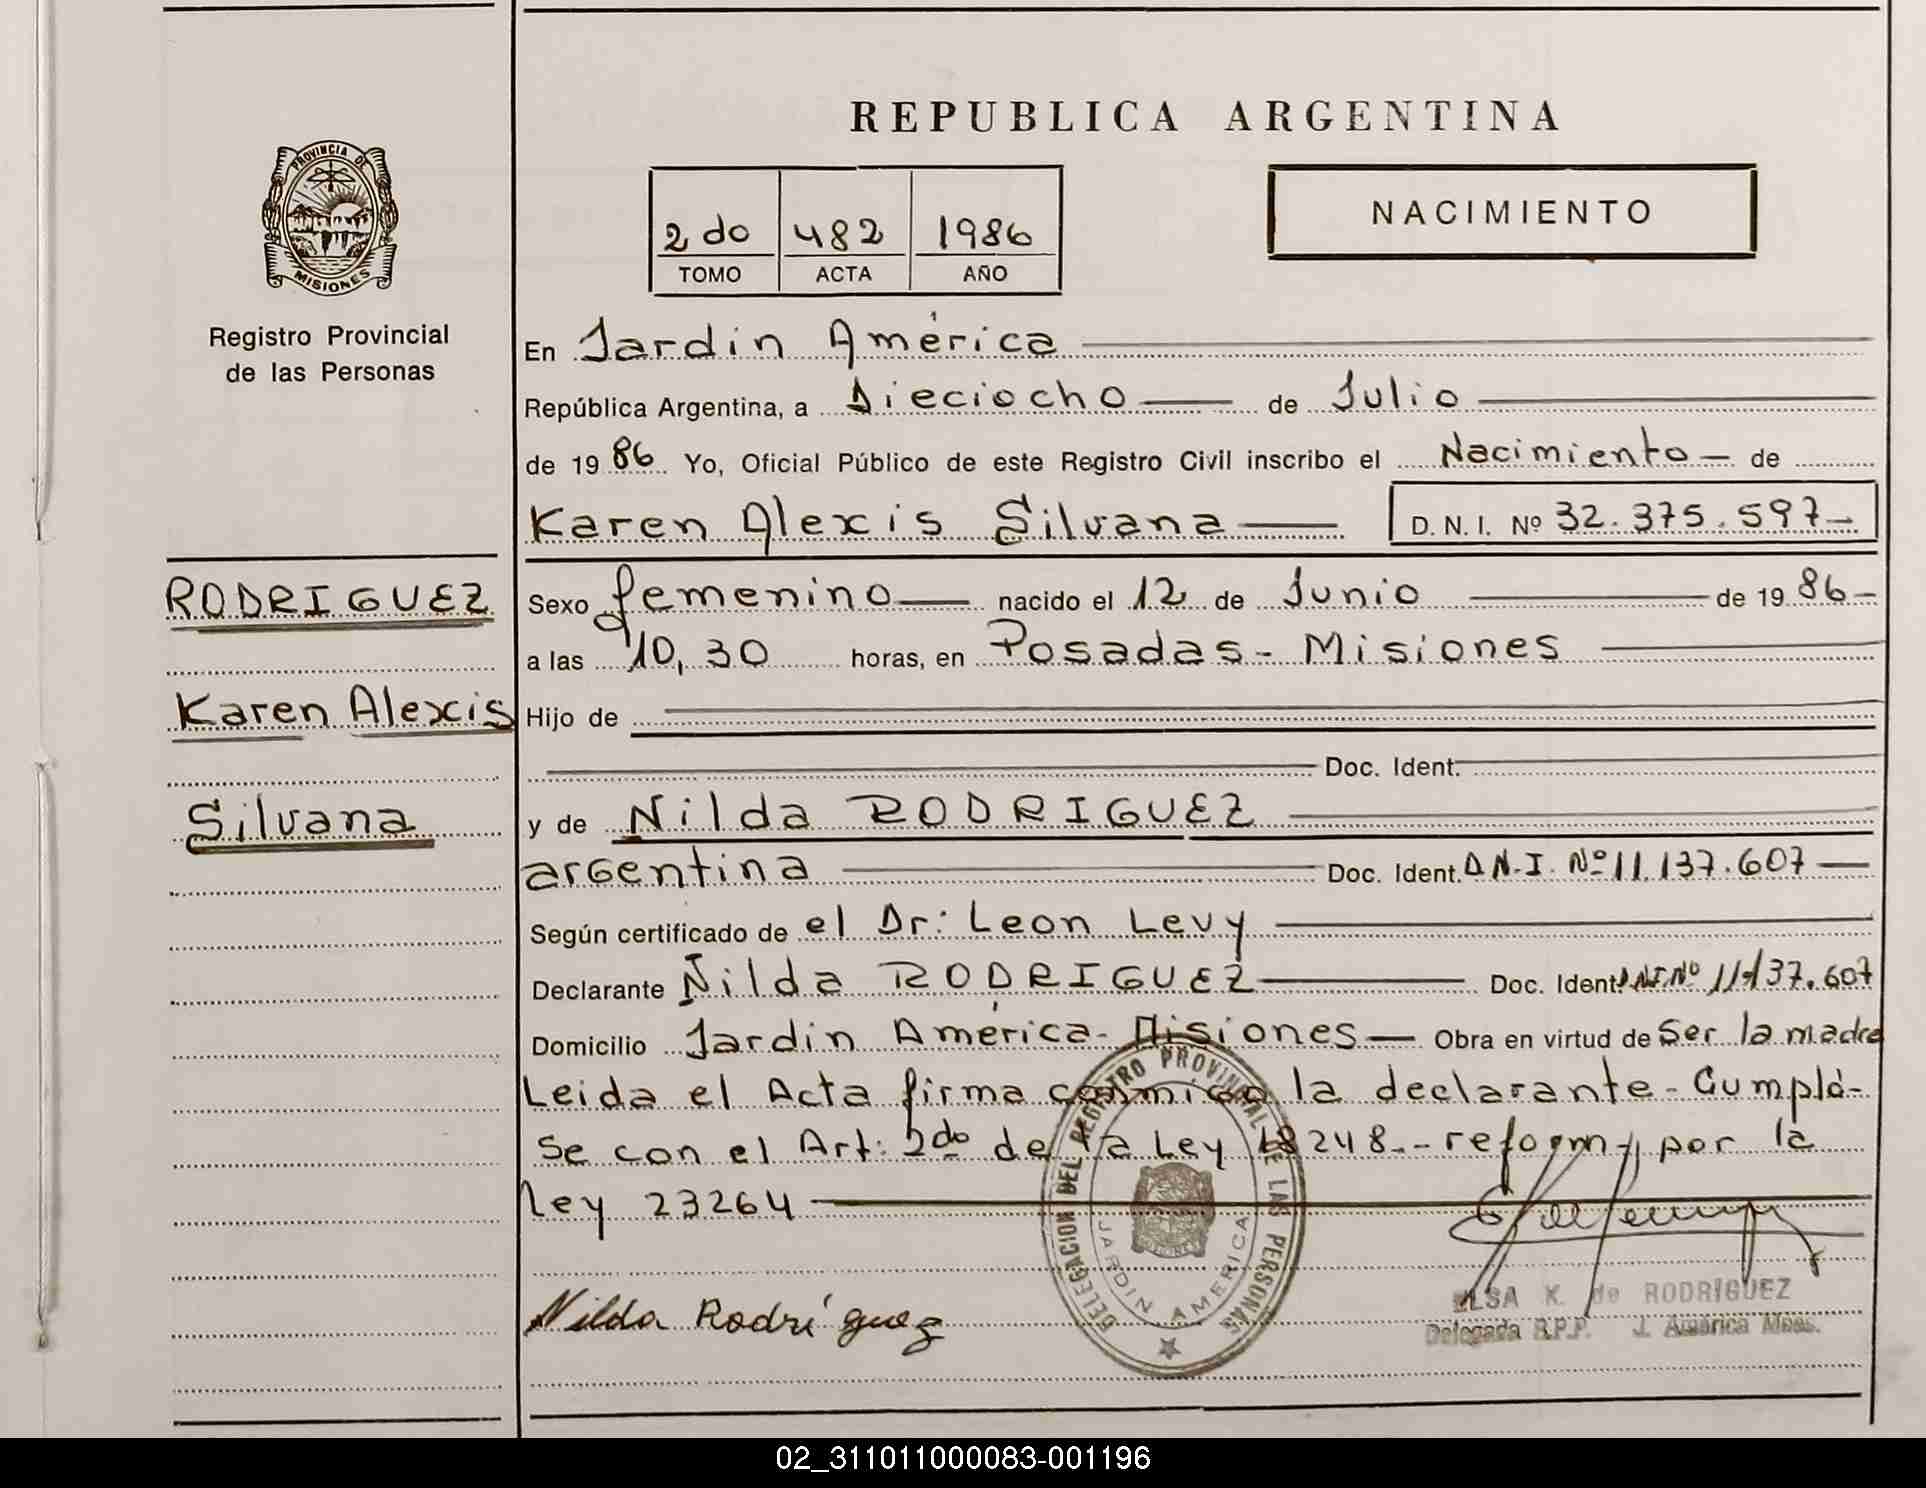 REPUBLICA ARGENTINA
PROVINCIA DE
MISIONES
Registro Provincial
de las Personas
2 do 482 1986
TOMO ACTA AÑO
NACIMIENTO
En Jardin América
República Argentina, a Dieciocho — de Julio
de 19 86 Yo, Oficial Público de este Registro Civil inscribo el Nacimiento — de
Karen Alexis Silvana — D. N. I. Nº 32.375.597 —
RODRIGUEZ
Karen Alexis
Silvana
Sexo femenino — nacido el 12 de Junio — de 19 86 —
a las 10,30 horas, en Posadas - Misiones
Hijo de
Doc. Ident.
y de Nilda RODRIGUEZ
argentina — Doc. Ident. D.N.I. Nº 11.137.607 —
Según certificado de el Dr: Leon Levy
Declarante Nilda RODRIGUEZ — Doc. Ident DNI Nº 11.137.607
Domicilio Jardin América - Misiones — Obra en virtud de Ser la madre
Leida el Acta firma conmigo la declarante - Cumplá-
se con el Art: 2do de la Ley 18248 -- reform por la
Ley 23264
DELEGACION DEL REGISTRO PROVINCIAL DE LAS PERSONAS
JARDIN AMERICA
Nilda Rodríguez
ELSA K. de RODRÍGUEZ
Delegada R.P.P. J. América Mnes.
02_311011000083-001196